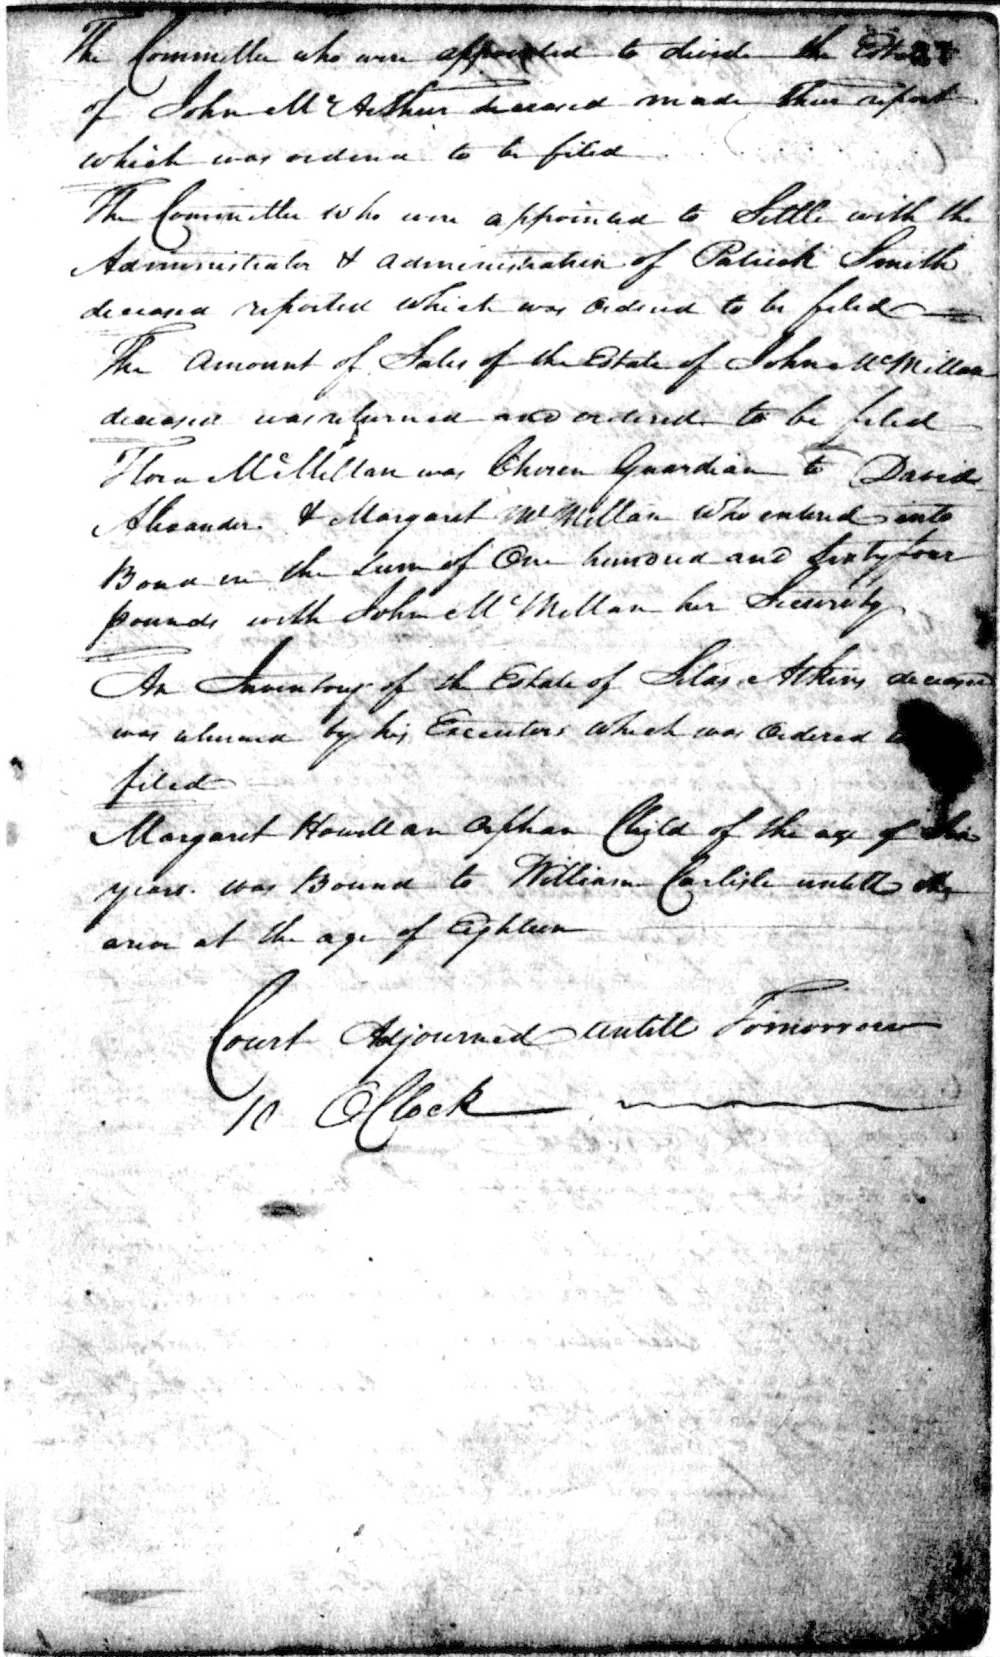 The Committee who were appointed to divide the Estate
of John McArthur deceased made their report
which was ordered to be filed
The Committee who were appointed to Settle with the
Administrator & administration of Patrick Smith
deceased reported which was ordered to be filed
The amount of Sales of the Estate of John McMillan
deceased was returned and ordered to be filed
Flora McMillan was Chosen Guardian to David
Alexander & Margaret McMillan who entered into
Bond in the sum of One hundred and Sixty four
pounds with John McMillan her Security
An Inventory of the Estate of Silas Atkins deceased
was returned by his Executors which was ordered to
filed
Margaret Howell an orphan Child of the age of
years was Bound to William Carlisle untill she
arive at the age of Eighteen
Court Adjourned untill Tomorrow
10 OClock